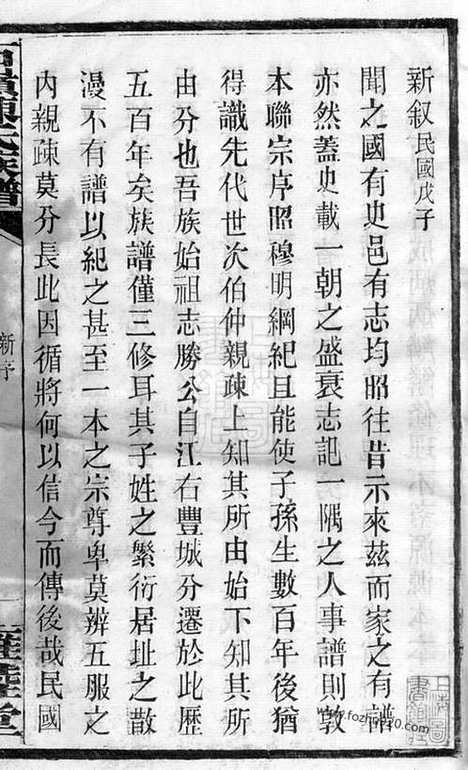 新叙民國戊子
聞之國有史邑有志均昭往昔示來茲而家之有譜
亦然蓋史載一朝之盛衰志記一隅之人事譜則敦
本聯宗序昭穆明綱紀且能使子孫生數百年後猶
得識先代世次伯仲親疎上知其所由始下知其所
由分也吾族始祖志勝公自江右豐城分遷於此歷
五百年矣族譜僅三修耳其子姓之繁衍居址之散
漫不有譜以紀之甚至一本之宗尊卑莫辨五服之
內親疎莫分長此因循將何以信今而傳後哉民國
陳氏族譜
新序
堂
www.fozhu920.com